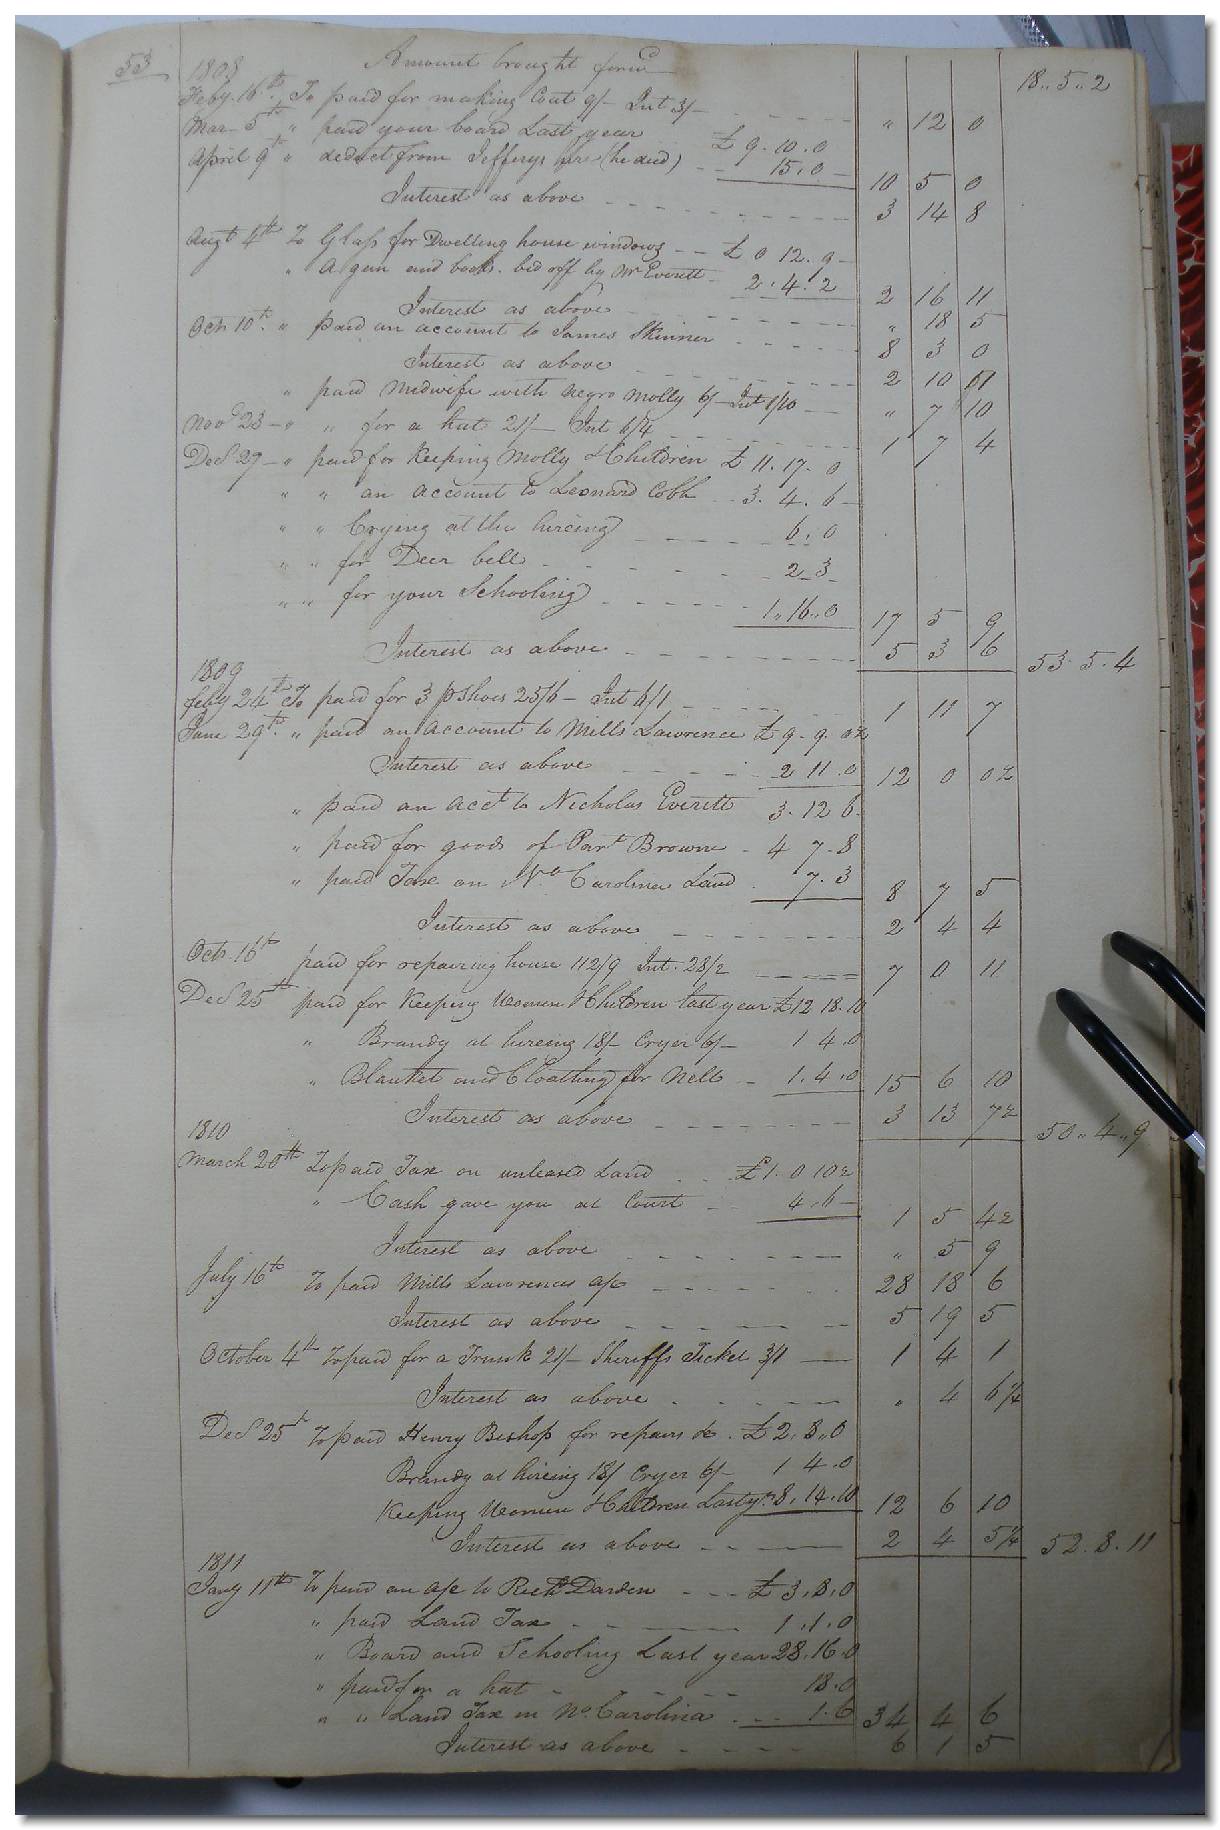 53
1808 Amount brought forwd 18..5..2
Feby. 16th. To paid for making Coat 9/- Int 3/- " 12 0
Mar 5th " paid your board Last year £ 9.10.0
April 9th " deduct from Jefferys hire (he died) 15.0 10 5 0
Interest as above 3 14 8
Augt 4th To Glass for Dwelling house windows £ 0 12.9
" A gun and books bid off by Mr Everett 2.4.2 2 16 11
Interest as above " 18 5
Octr 10th. " paid an account to James Skinner 8 3 0
Interest as above 2 10 11
" paid Midwife with negro Molly 6/- Int 1/10 " 7 10
Novr 23 " " for a hat 21/- Int 6/4 1 7 4
Decr 27 " paid for Keeping Molly & Children £ 11.17.0
" " an account to Leonard Cobb 3.4.6
" " Crying at the hireing 6.0
" " for Deer bell 2_3
" " for your Schooling 1..16..0 17 5 9
Interest as above 5 3 6 53.5.4
1809
feby 24th To paid for 3 p shoes 25/6 Int 6/1 1 11 7
June 29th. " paid an account to Mills Lawrence £ 9.9.0½
Interest as above 2 11.0 12 0 0½
" paid an acct to Nicholas Everett 3.12 6.
" paid for goods of Brown 4 7.8
" paid Tax on No Carolina Land 7.3 8 7 5
Interest as above 2 4 4
Octr. 16th paid for repairing house 112/9 Int. 28/2 7 0 11
Decr 25th paid for Keeping Women & Children last year £12.18.10
" Brandy at hireing 18/- Cryer 6/- 1 4.0
" Blanket and Cloathing for Nell 1.4.0 15 6 10
Interest as above 3 13 7½ 50..4..9
1810
March 20th To paid Tax on unleased Land £1.0 10½
" Cash gave you at Court 4.6 1 5 4½
Interest as above " 5 9
July 16th To paid Mills Lawrences a/c 28 18 6
Interest as above 5 19 5
October 4th To paid for a Trunk 21/- Sheriffs Ticket 3/1 1 4 1
Interest as above " 4 6¼
Decr 25th To paid Henry Bishop for repairs &c. £2.8.0
Brandy at hireing 18/ Cryer 6/- 1 4.0
Keeping Women & Children Last yr. 8.14.10 12 6 10
Interest as above 2 4 5¼ 52.8.11
1811
Jany 11th To paid an a/c to Richd Darden £ 3.8.0
" paid Land Tax 1.1.0
" Board and Schooling Last year 28.16.0
" paid for a hat 18.0
" " Land Tax in No. Carolina 1.6 34 4 6
Interest as above 6 1 5